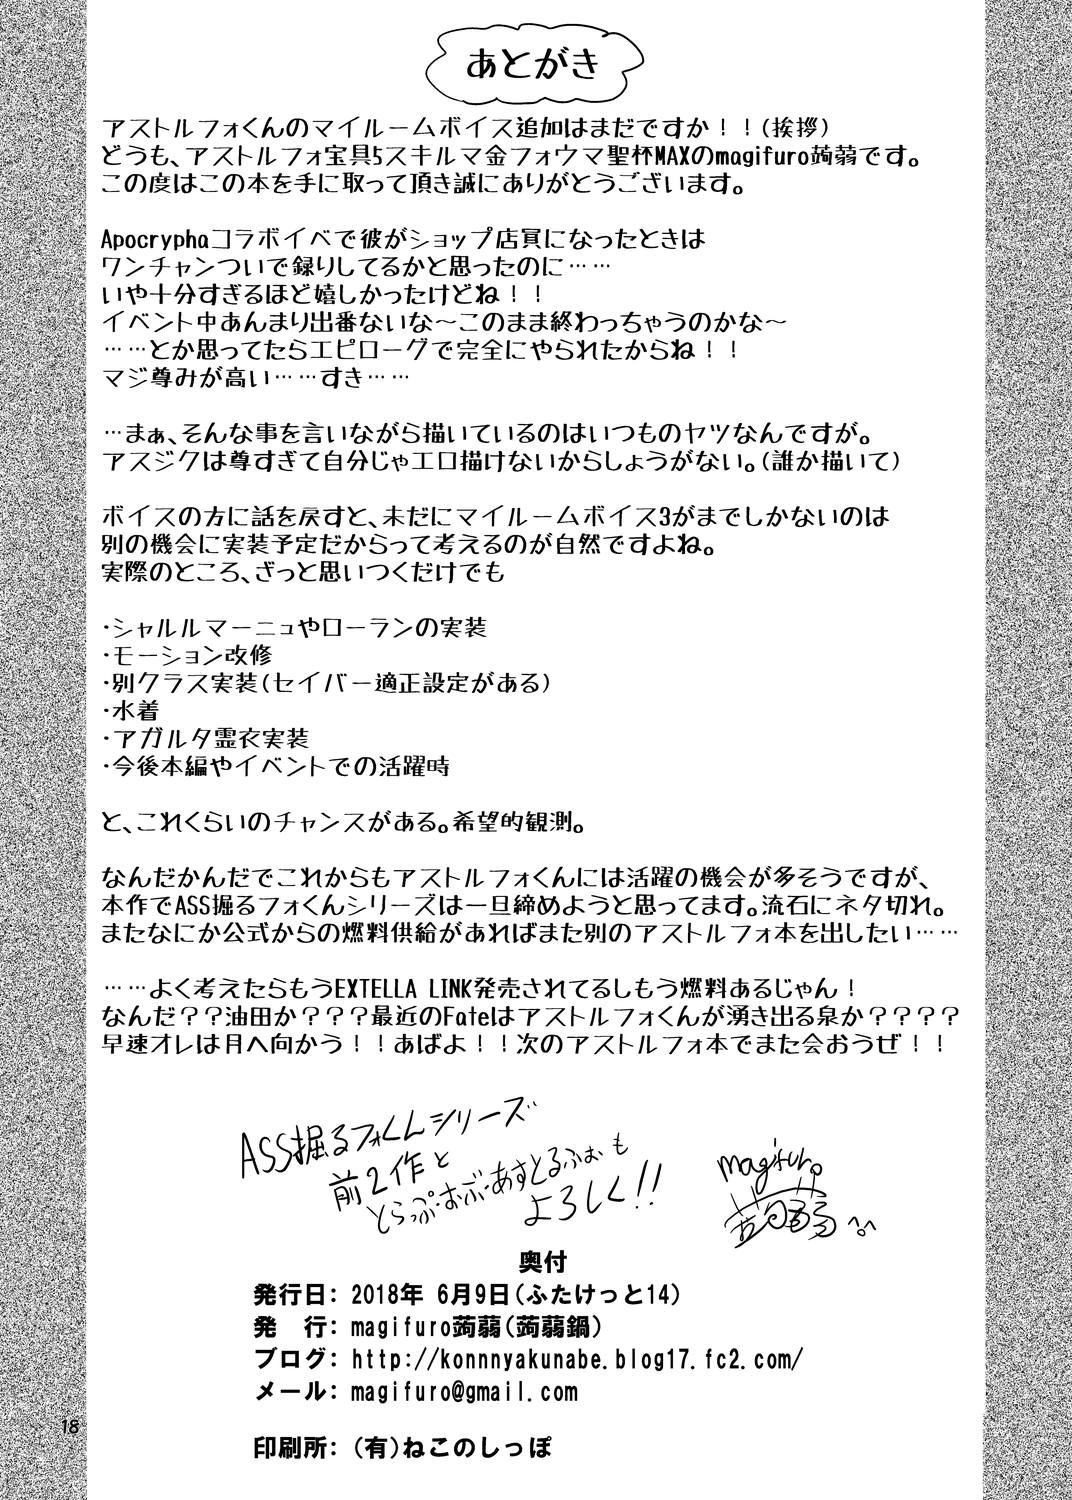 あとがき
アストルフォくんのマイルームボイス追加はまだですか！！(挨拶)
どうも、アストルフォ宝具5スキルマ金フォウマ聖杯MAXのmagifuro蒟蒻です。
この度はこの本を手に取って頂き誠にありがとうございます。
Apocryphaコラボイベで彼がショップ店員になったときは
ワンチャンついで録りしてるかと思ったのに……
いや十分すぎるほど嬉しかったけどね！！
イベント中あんまり出番ないな～このまま終わっちゃうのかな～
……とか思ってたらエピローグで完全にやられたからね！！
マジ尊みが高い……すき……
…まぁ、そんな事を言いながら描いているのはいつものヤツなんですが。
アスジクは尊すぎて自分じゃエロ描けないからしょうがない。(誰か描いて)
ボイスの方に話を戻すと、未だにマイルームボイス3がまでしかないのは
別の機会に実装予定だからって考えるのが自然ですよね。
実際のところ、ざっと思いつくだけでも
・シャルルマーニュやローランの実装
・モーション改修
・別クラス実装(セイバー適正設定がある)
・水着
・アガルタ霊衣実装
・今後本編やイベントでの活躍時
と、これくらいのチャンスがある。希望的観測。
なんだかんだでこれからもアストルフォくんには活躍の機会が多そうですが、
本作でASS掘るフォくんシリーズは一旦締めようと思ってます。流石にネタ切れ。
またなにか公式からの燃料供給があればまた別のアストルフォ本を出したい……
……よく考えたらもうEXTELLA LINK発売されてるしもう燃料あるじゃん！
なんだ？？油田か？？？最近のFateはアストルフォくんが湧き出る泉か？？？？
早速オレは月へ向かう！！あばよ！！次のアストルフォ本でまた会おうぜ！！
ASS掘るフォくんシリーズ
前2作と
とらっぷ・おぶ・あすとるふぉも
よろしく!!
magifuro
蒟蒻
奥付
発行日: 2018年 6月9日(ふたけっと14)
発　行: magifuro蒟蒻(蒟蒻鍋)
ブログ: http://konnnyakunabe.blog17.fc2.com/
メール: magifuro@gmail.com
18
印刷所: (有)ねこのしっぽ